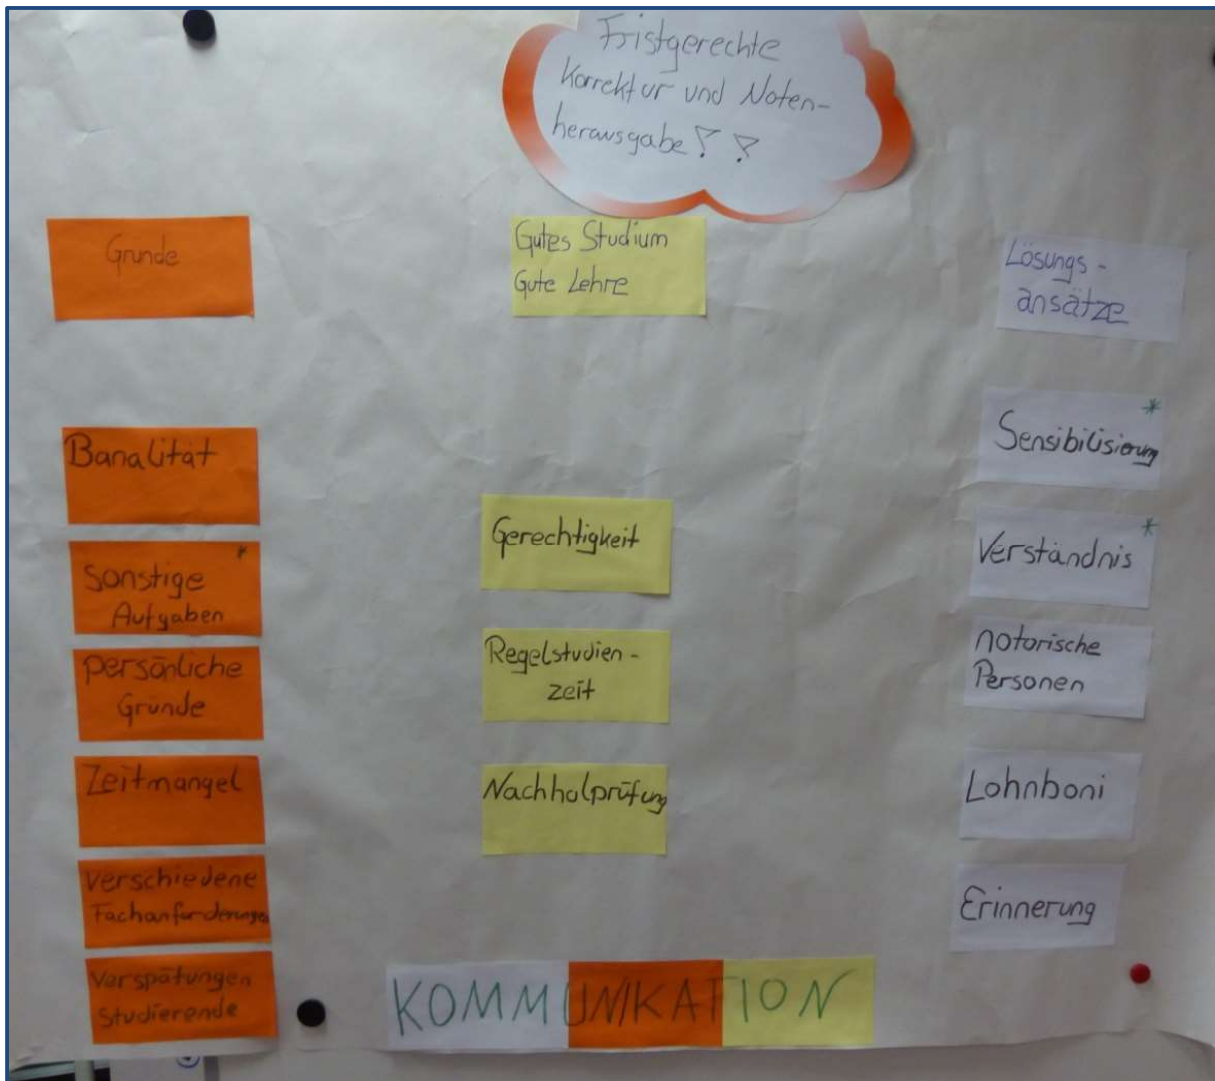 Fristgerechte
Korrektur und Noten-
herausgabe ? ?
Gründe
Banalität
Sonstige *
Aufgaben
persönliche
Gründe
Zeitmangel
Verschiedene
Fachanforderungen
Verspätungen
Studierende
Gutes Studium
Gute Lehre
Gerechtigkeit
Regelstudien-
zeit
Nachholprüfung
Lösungs-
ansätze
*
Sensibilisierung
*
Verständnis
notorische
Personen
Lohnboni
Erinnerung
KOMMUNIKATION